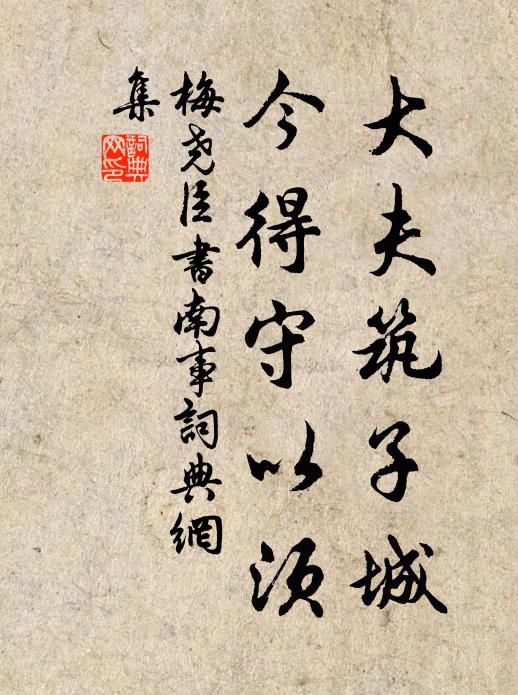 大夫筑子城
今得守以须
梅尧臣書南事詞典網
集
詞典网印